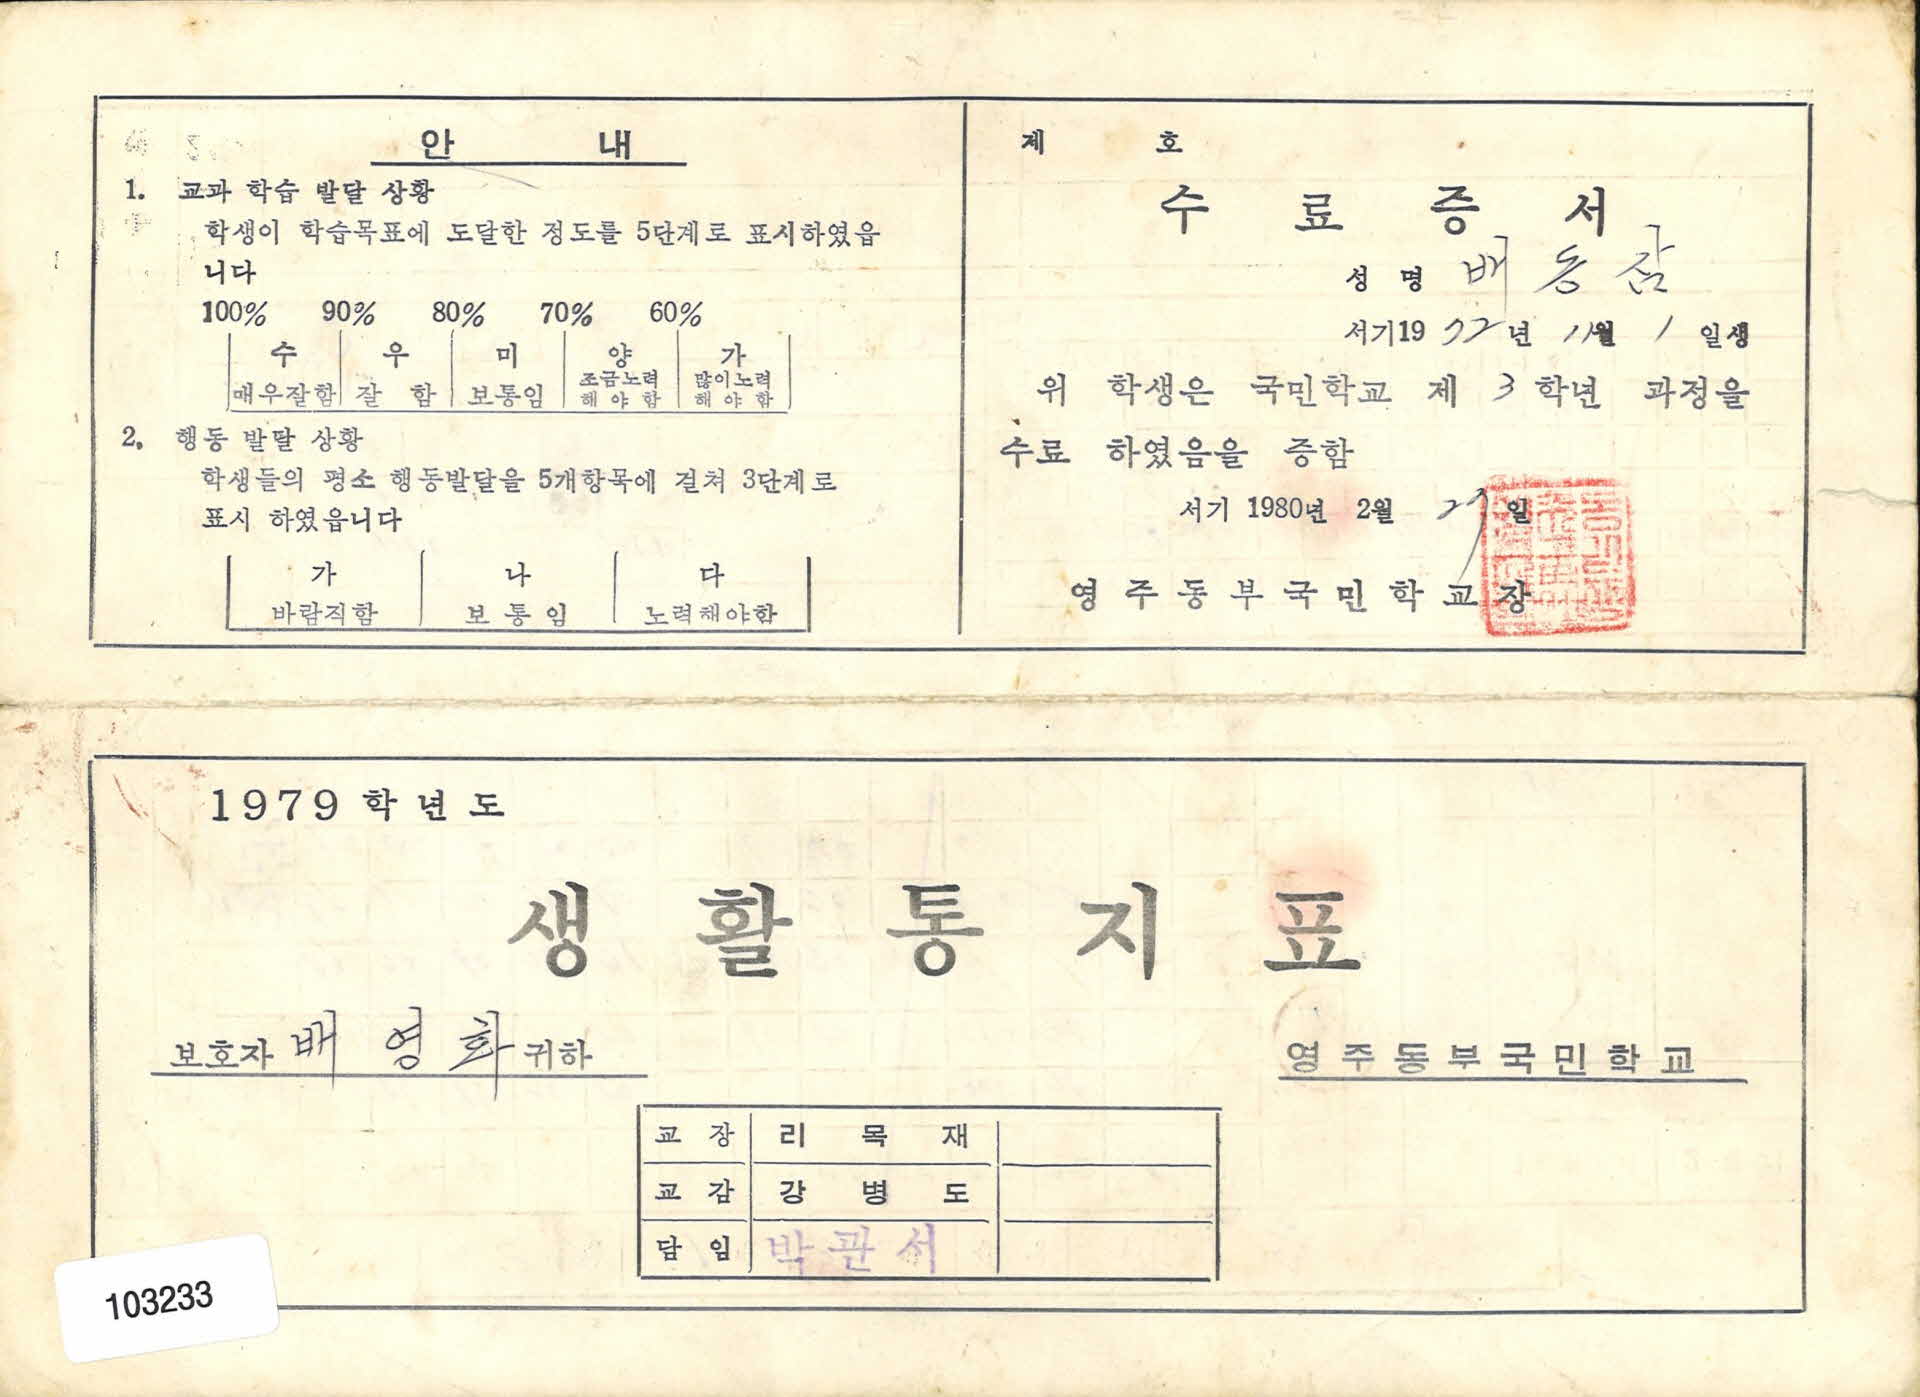 안 내
1. 교과 학습 발달 상황
학생이 학습목표에 도달한 정도를 5단계로 표시하였읍
니다
100% 90% 80% 70% 60%
수 우 미 양 가
매우잘함 잘 함 보통임 조금노력 해야함 많이노력 해야함
2. 행동 발달 상황
학생들의 평소 행동발달을 5개항목에 걸쳐 3단계로
표시 하였읍니다
가 나 다
바람직함 보통임 노력해야함
제 호
수 료 증 서
성 명 배 동 삼
서기19 72년 11월 1 일생
위 학생은 국민학교 제 3 학년 과정을
수료 하였음을 증함
서기 1980년 2월 27일
영주동부국민학교장
1979학년도
생 활 통 지 표
보호자 배 영 화 귀하
영주동부국민학교
교 장 리 목 재
교 감 강 병 도
담 임 박 관 서
103233